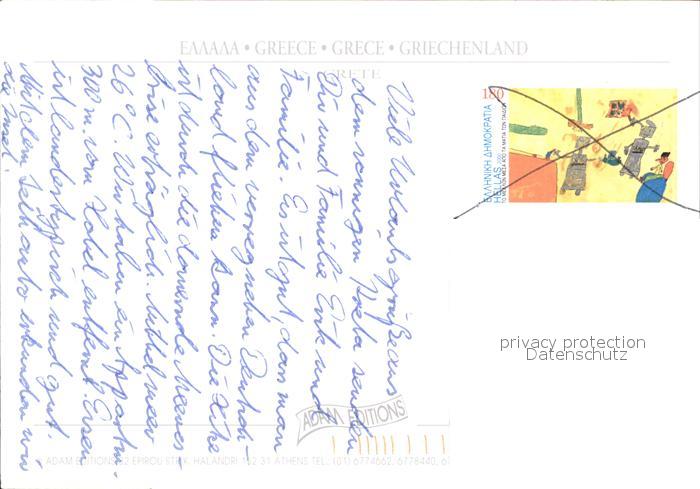 ΕΛΛΑΔΑ • GREECE • GRECE • GRIECHENLAND
CRETE
Viele Urlaubsgrüße aus
dem sonnigen Kreta senden
Dir und Familie Eure und
Familie. Es ist gut, dass man
aus dem verregneten Deutsch-
land fliehen kann. Die Hitze
ist durch die dauernde Meeres-
brise erträglich. Mittelmeer
26°C. Wir haben ein Appartm.
300 m vom Hotel entfernt. Essen
ist landestypisch und gut.
Mit dem Leihauto erkunden wir
die Insel.
180
ΕΛΛΗΝΙΚΗ ΔΗΜΟΚΡΑΤΙΑ
HELLAS 2000
ΤΟ ΜΕΛΛΟΝ ΜΕΣΑ ΑΠΟ ΤΑ ΜΑΤΙΑ ΤΩΝ ΠΑΙΔΙΩΝ
privacy protection
Datenschutz
ADAM EDITIONS
ADAM EDITIONS 22 EPIROU STR. K. HALANDRI 152 31 ATHENS TEL.: (01) 6774662, 6778440,